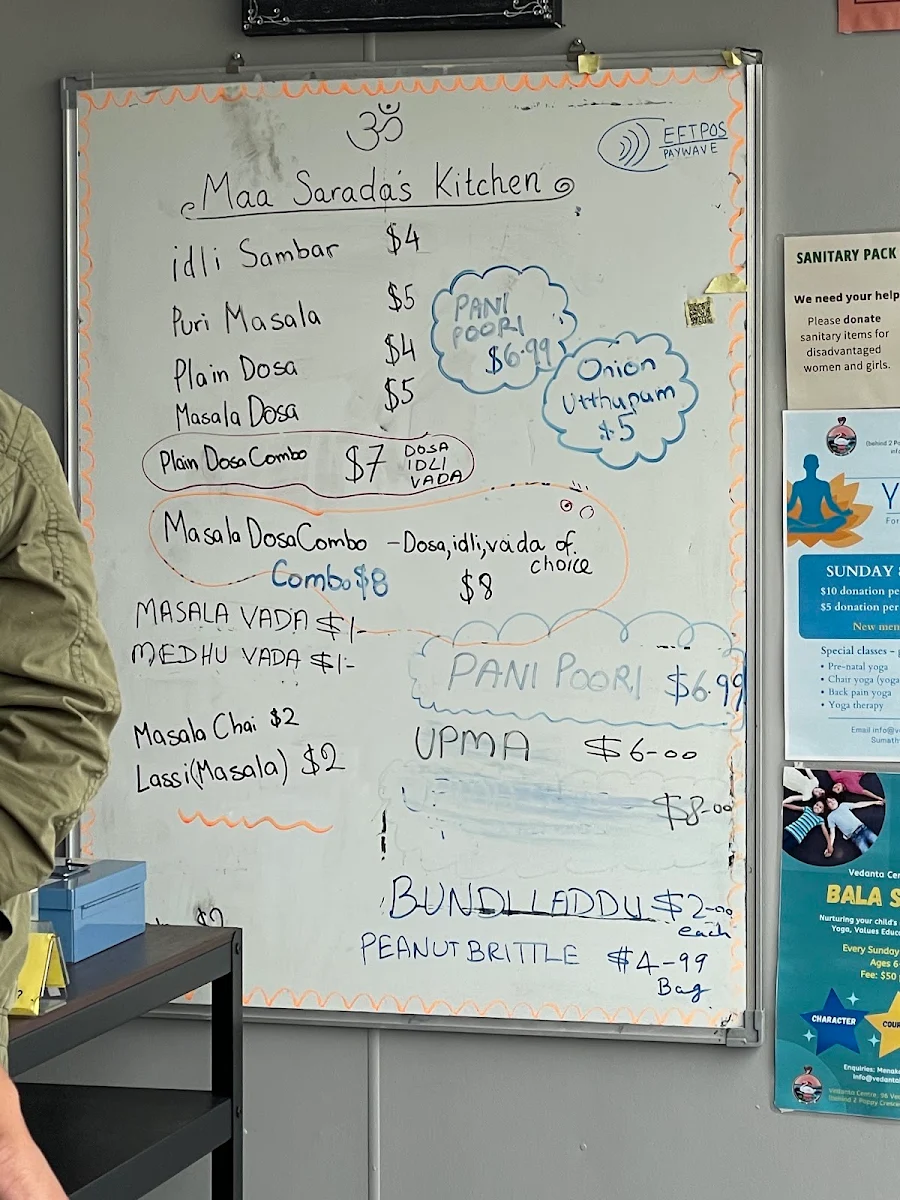 ॐ
EFTPOS
PAYWAVE
Maa Sarada's Kitchen
idli Sambar $4
Puri Masala $5
Plain Dosa $4
Masala Dosa $5
PANI
POORI
$6.99
Onion
Utthapam
$5
Plain Dosa Combo $7 DOSA
IDLI
VADA
Masala Dosa Combo - Dosa, idli, vada of
choice
Combo $8 $8
MASALA VADA $1-
MEDHU VADA $1-
PANI POORI $6.99
Masala Chai $2
Lassi (Masala) $2
UPMA $6-00
$8-00
BUNDI LADDU $2-00
each
PEANUT BRITTLE $4-99
Bag
$2
?
SANITARY PACK
We need your help
Please donate
sanitary items for
disadvantaged
women and girls.
(behind 2
Y
For
SUNDAY
$10 donation
$5 donation per
New
Special classes -
• Pre-natal yoga
• Chair yoga (yoga
• Back pain yoga
• Yoga therapy
Email
Vedanta
BALA S
Nurturing your child's
Yoga, Values
Every Sunday
Ages 6-
Fee: $50
CHARACTER
COUR
Enquiries:
Vedanta Centre,